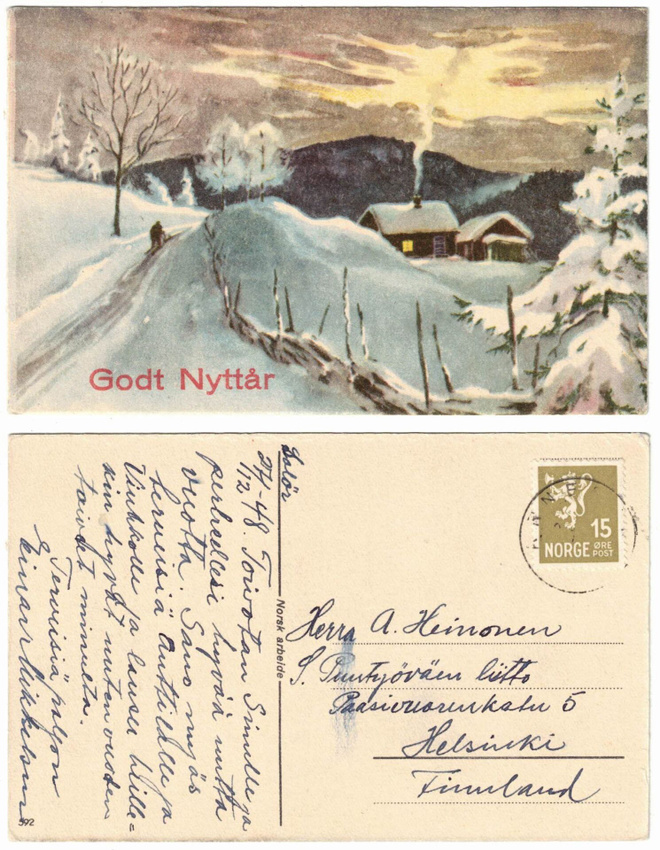 Godt Nyttår
Solör
27/12-48. Toivotan Sinulle ja
perheellesi hyvää uutta
vuotta. Sano myös
terveisiä Anttilalle ja
ja lausu heille=
kin hyvät uuden vuoden
toivot minulta.
Terveisiä paljon
Einari Mikkelson
Norsk arbeide
592
NORGE 15 ØRE
POST
Herra A. Heinonen
S. Puutyöväen liitto
Paasivuorenkatu 5
Helsinki
Finnland